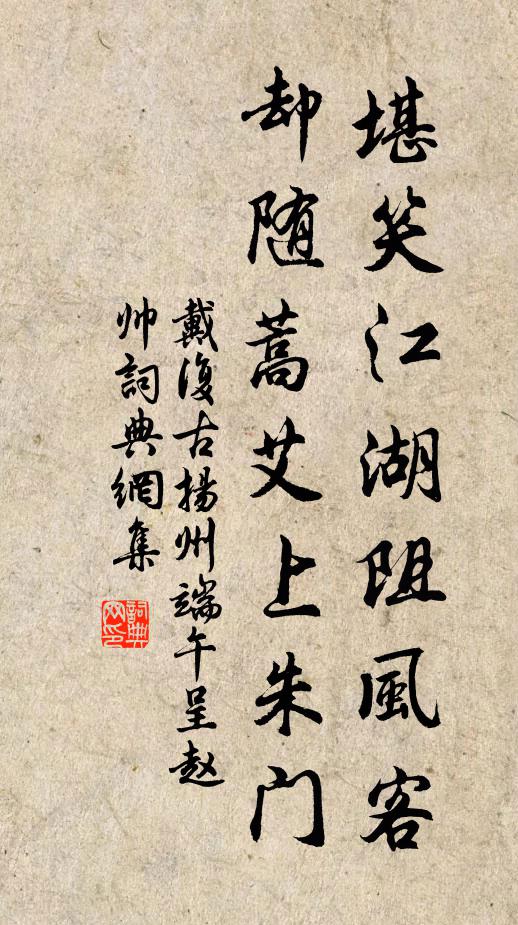 堪笑江湖阻風客
却随蒿艾上朱门
戴復古揚州端午呈趙
帅詞典網集
詞典网印